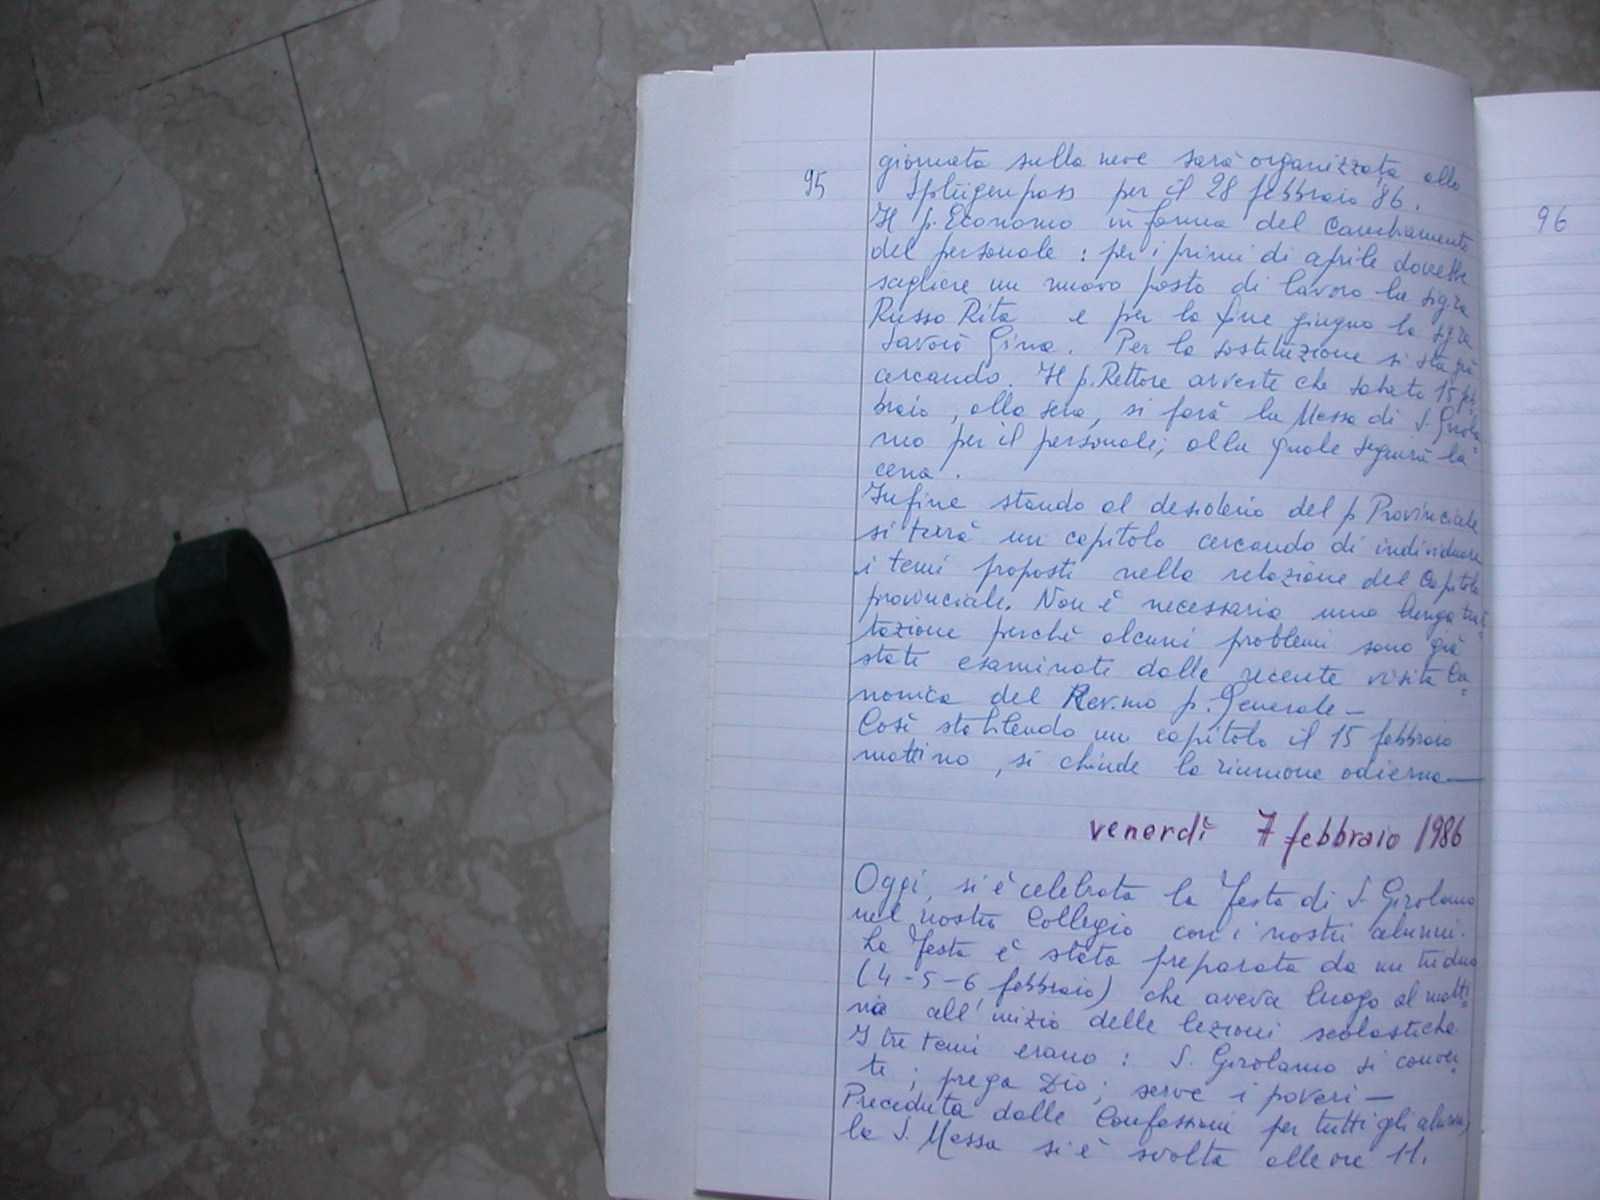 95
giornata sulla neve sarà organizzata allo
Splügenpass per il 28 febbraio '86.
Il p. Economo informa del cambiamento
del personale : per i primi di aprile dovrebbe
scegliere un nuovo posto di lavoro la sig.ra
Russo Rita e per la fine giugno la sig.ra
Gina. Per la sostituzione si sta già
cercando. Il p. Rettore avverte che sabato 15 feb
braio, alla sera, si farà la Messa di S. Girola
mo per il personale, alla quale seguirà la
cena.
Infine stando al desiderio del p Provinciale
si terrà un capitolo cercando di individuare
i temi proposti nella relazione del Capitolo
provinciale. Non è necessaria una lunga trat=
tazione perchè alcuni problemi sono già
stati esaminati dalla recente visita Ca=
nonica del Rev.mo p. Generale —
Così stabilendo un capitolo il 15 febbraio
mattino, si chiude la riunione odierna —
venerdì 7 febbraio 1986
Oggi, si è celebrata la Festa di S. Girolamo
nel nostro Collegio con i nostri alunni.
La Festa è stata preparata da un triduo
(4-5-6 febbraio) che aveva luogo al matti=
no all'inizio delle lezioni scolastiche
I tre temi erano : S. Girolamo si conver
te ; prega Dio ; serve i poveri —
Preceduta dalle Confessioni per tutti gli alunni,
la S. Messa si è svolta alle ore 11.
96